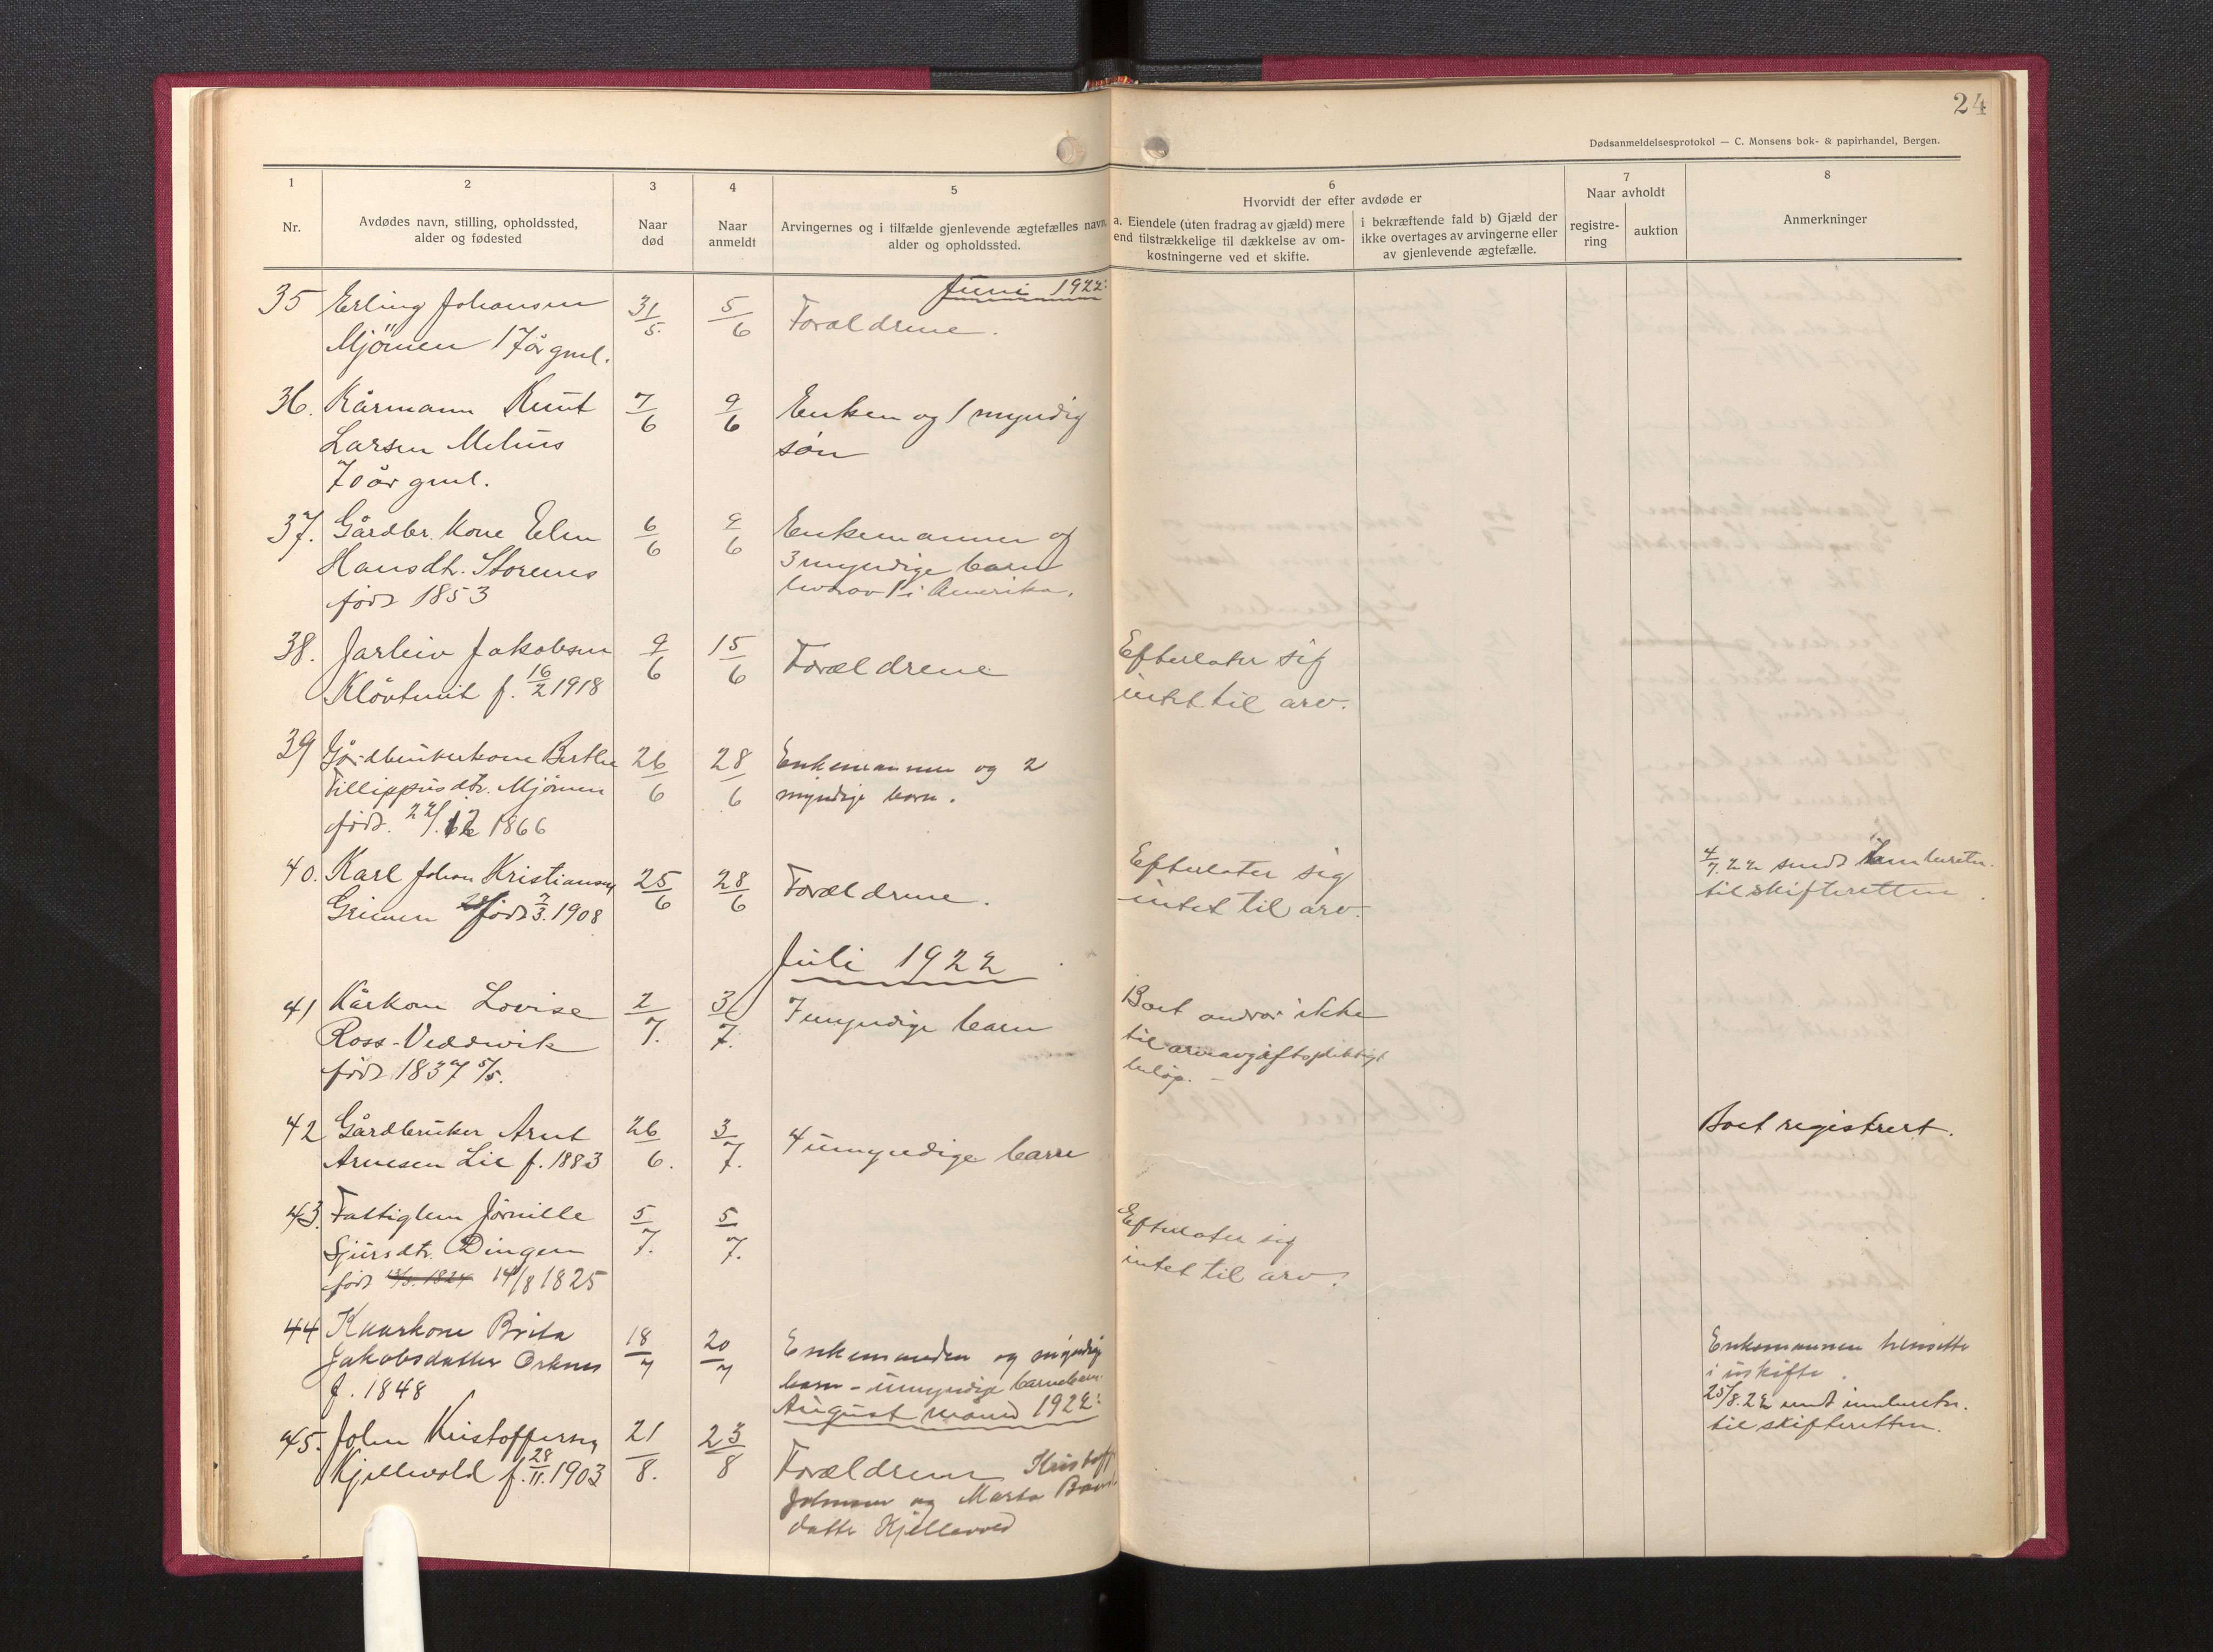 24
Dødsanmeldelsesprotokol — C. Monsens bok- & papirhandel, Bergen.
1
Nr.
2
Avdødes navn, stilling, opholdssted,
alder og fødested
3
Naar
død
4
Naar
anmeldt
5
Arvingernes og i tilfælde gjenlevende ægtefælles navn,
alder og opholdssted.
6
Hvorvidt der efter avdøde er
a. Eiendele (uten fradrag av gjæld) mere
end tilstrækkelige til dækkelse av om-
kostningerne ved et skifte.
i bekræftende fald b) Gjæld der
ikke overtages av arvingerne eller
av gjenlevende ægtefælle.
7
Naar avholdt
registre-
ring
auktion
8
Anmerkninger
Juni 1922:
35 Erling Johansen 31/5. 5/6 Forældrene.
Mjömen 17 år gml.
36. Kårmann Knut 7/6 9/6 Enken og 1 myndig
Larsen Mehus søn
70 år gml.
37. Gårdbr. kone Elen 6/6 9/6 Enkemannen og
Hansdt. Storenes 3 myndige barn
født 1853 hvorav 1 i Amerika.
38. Jarleiv Jakobsen 9/6 15/6 Forældrene Efterlater sig
Kløvtveit f. 16/2 1918 intet til arv.
39 Gårdbrukerkone Berthe 26/6 28/6 Enkemannen og 2
Fillippusdtr. Mjömen myndige barn.
født. 1866
40. Karl Johan Kristiansen 25/6 28/6 Forældrene. Efterlater sig 4/7.22 sendt innberetn.
Grimen født 7/3. 1908 intet til arv. til skifteretten.
Juli 1922
41 Kårkone Lovise 2/7. 3/7. 7 myndige barn Boet andrar ikke
Ross-Veddvik til arveavgiftspliktigt
født 1837 5/5. beløp. –
42 Gårdbruker Arnt 26/6. 3/7. 4 umyndige barn Boet registrert.
Arnesen Lie f. 1883
43. Fattiglem Jörnille 5/7. 5/7. Efterlater sig
Sjursdtr. Dingen intet til arv.
født 14/8 1825
44 Kaarkone Brita 18/7 20/7 Enkemanden og myndige Enkemannen hensitte
Jakobsdatter Orknes barn – umyndige barnebarn. i uskifte.
f. 1848
August måned 1922: 25/8.22 sendt innberetn.
til skifteretten.
45. John Kristoffersen 21/8. 23/8 Forældrene Kristoff
Kjellevold f. 28/11. 1903 Johnsen og Marta
datter Kjellevold